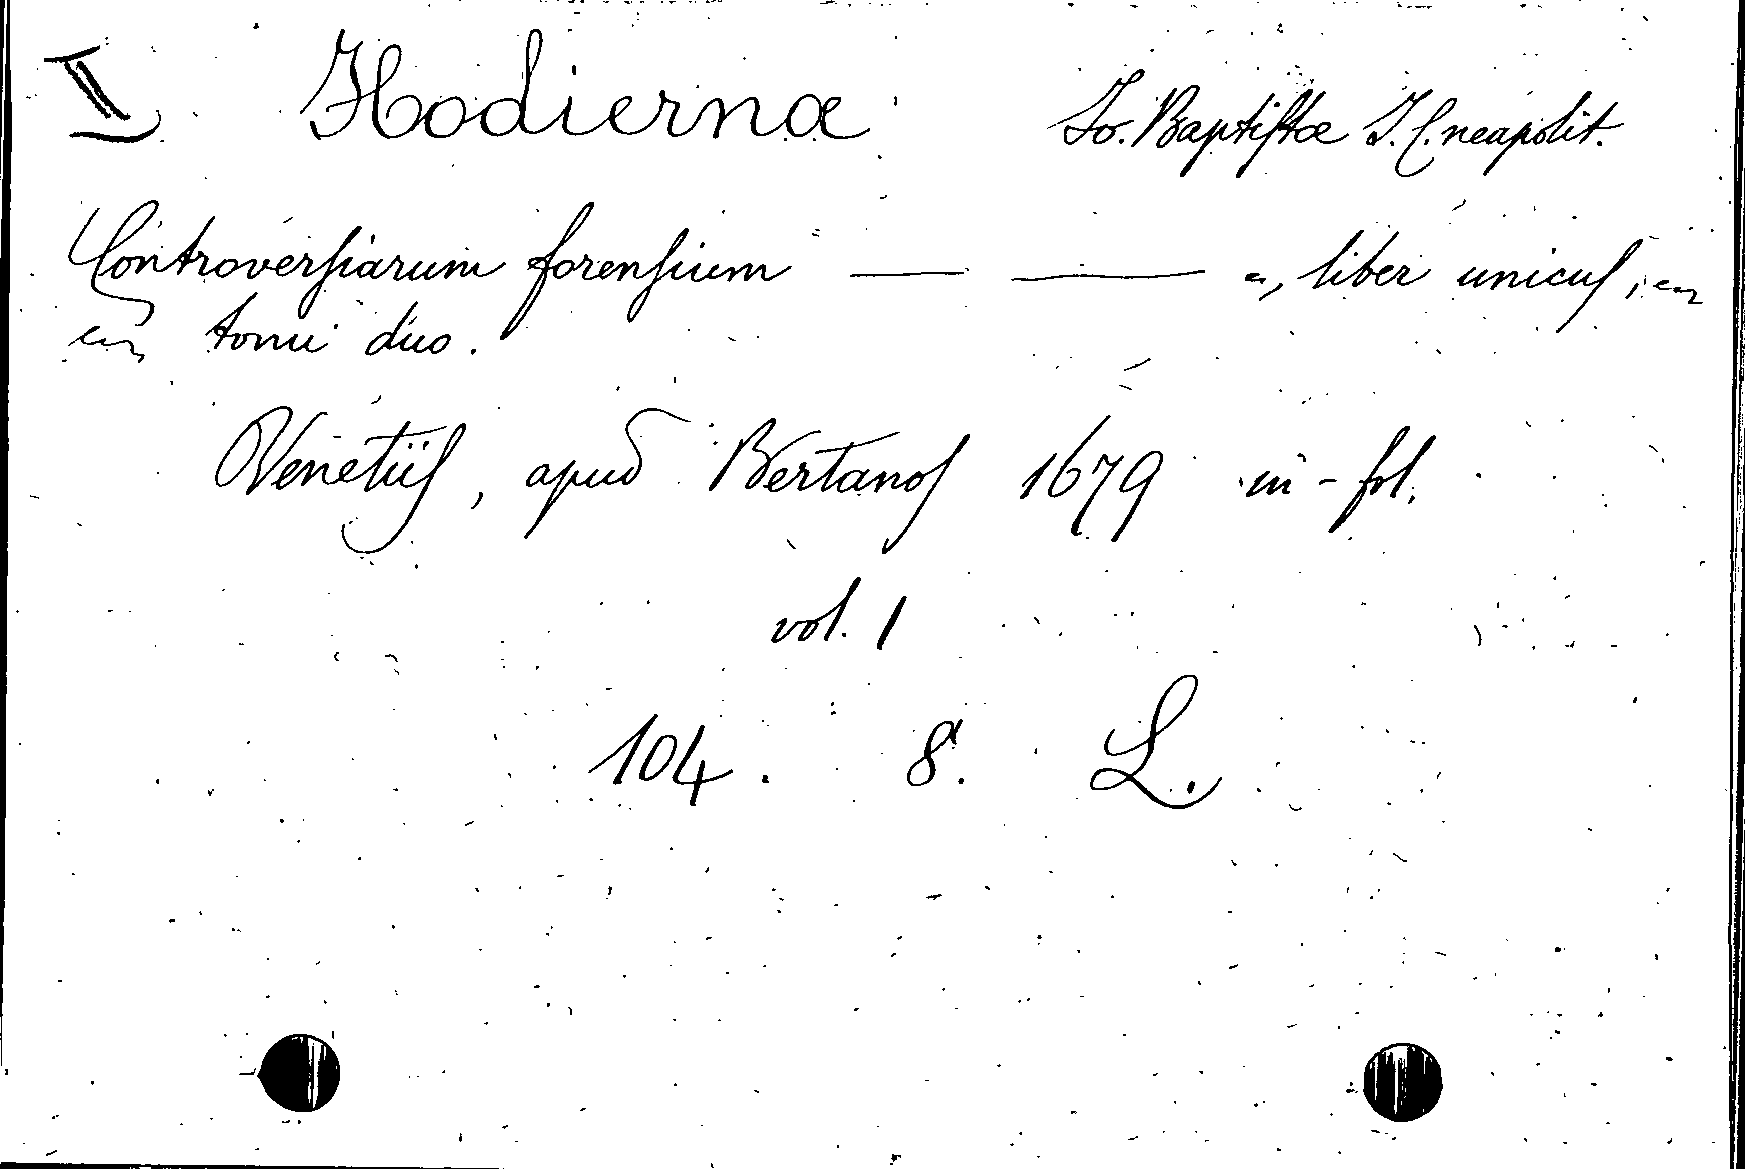 I Hodiernæ Jo. Baptiſtæ J. C. neapolit.
Controverſiarum forenſium — — , liber unicuſ,
tomi duo.
Venetiiſ, apud Bertanoſ 1679 in-fol.
vol. 1
104. 8. L.